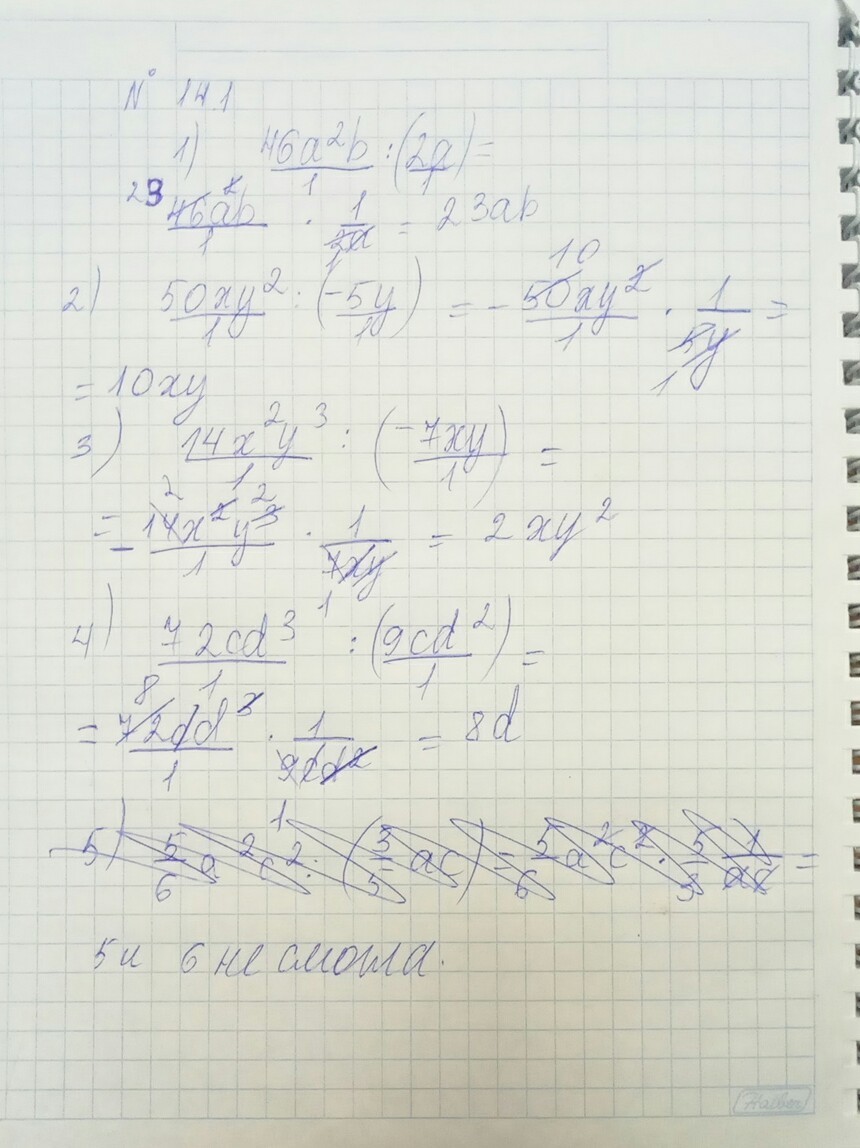 N° 141
1) 46a²b/1 : (2a/1) =
23 46a²b/1 · 1/2a = 23ab
1
10
2) 50xy²/1 : (-5y/1) = - 50xy²/1 · 1/5y =
1
= 10xy
3) 14x²y³/1 : (-7xy/1) =
2 2
= - 14x²y³/1 · 1/7xy = 2xy²
1
4) 72cd³/1 : (9cd²/1) =
8
= 72cd³/1 · 1/9cd² = 8d
5) 5/6 a²c² : (3/5 ac) = 5/6 a²c² · 5/3 1/ac =
5 и 6 не смогла.
Hatber